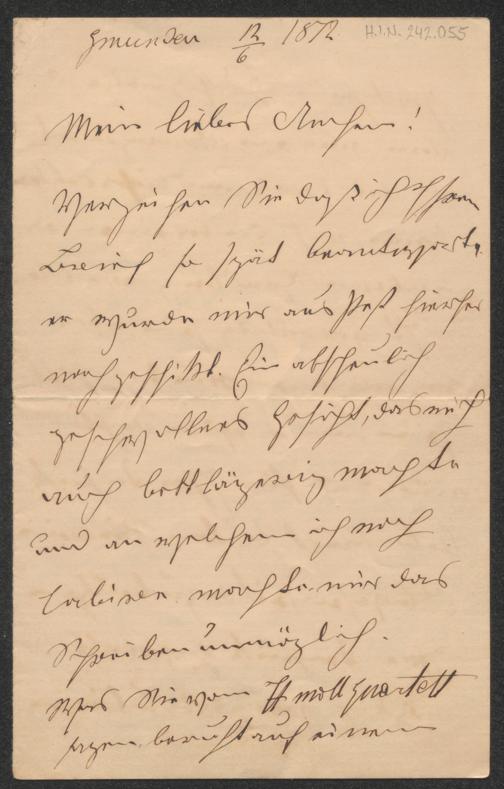 Gmunden 12/6 1872. H.I.N. 242.055
Mein liebes Annchen!
Verzeihen Sie daß ich Ihren
Brief so spät beantworte,
er wurde mir aus Pest hierher
nachgeschikt. Ein abscheulich
geschwollnes Gesicht, das mich
auch bettlägerig machte
und an welchem ich noch
laborire machte mir das
Schreiben unmöglich.
Was Sie vom moll Quartett
sagen beruht auf einem